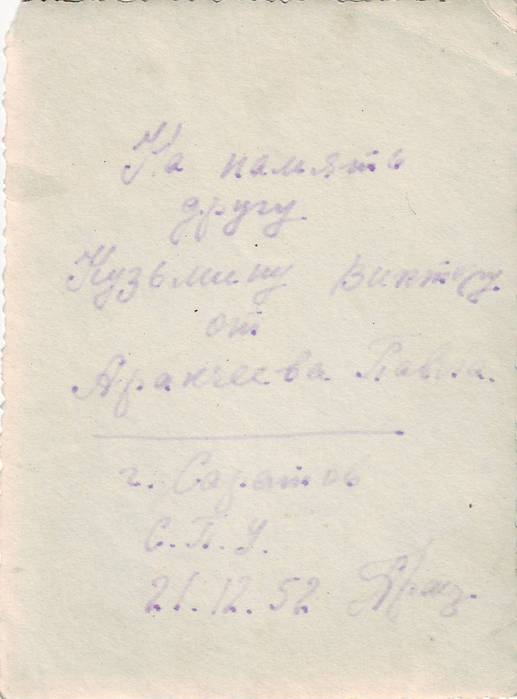 На память
другу
Кузьмину Виктору
от
Аракчеева Павла.
г. Саратов
С.П.У.
21.12.52